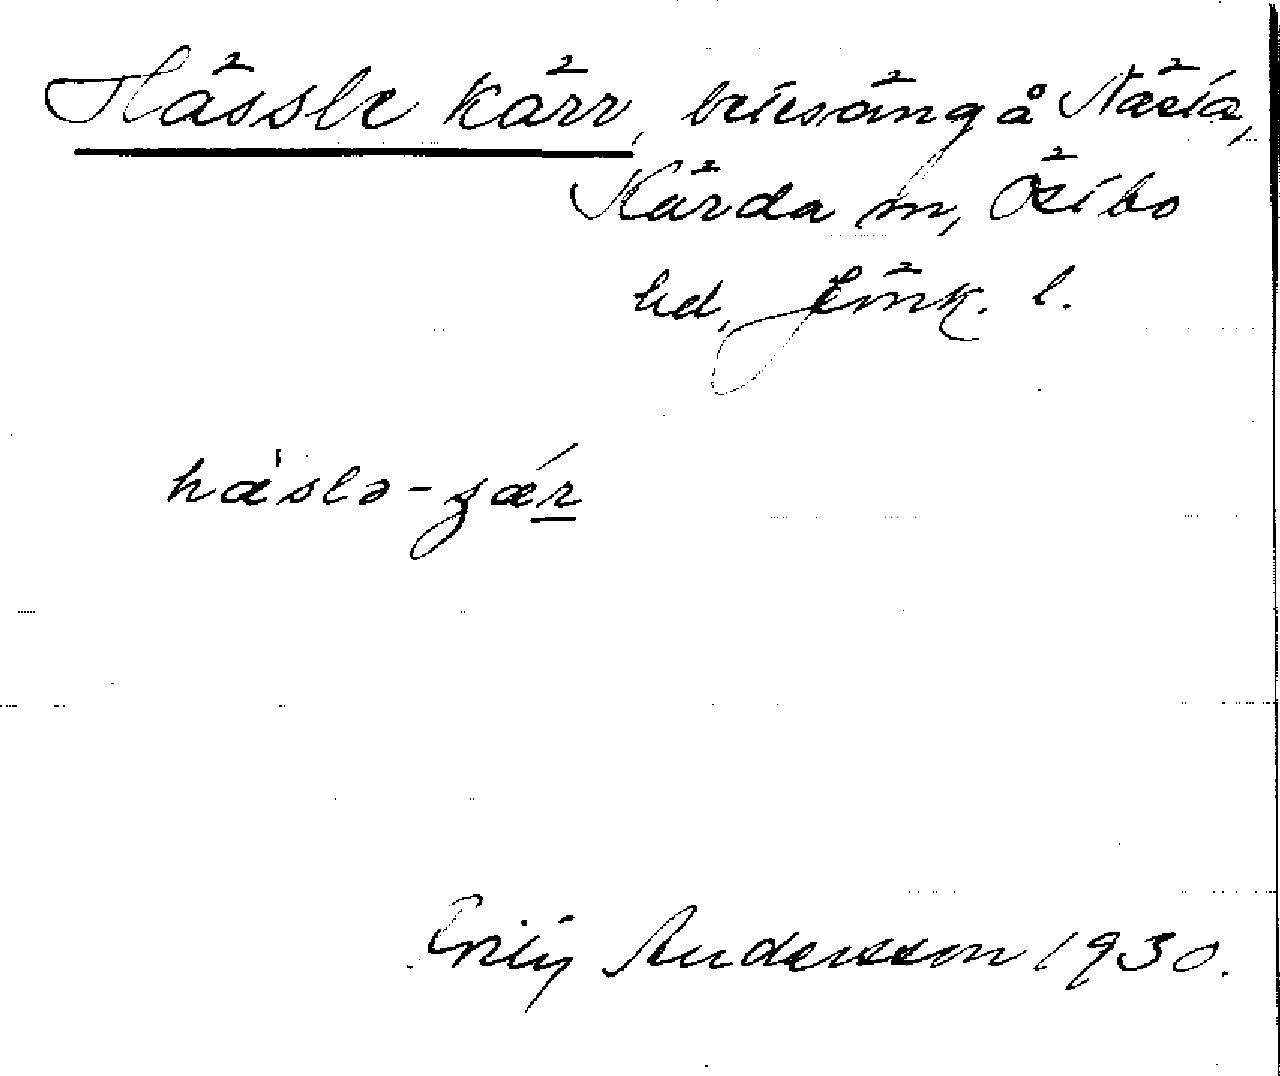 Hässle kärr, betesäng å Nästa,
Kärda sn, Östbo
hd, Jönk. l.
hä'slə-ɟǽr
Emily Andersson 1930.